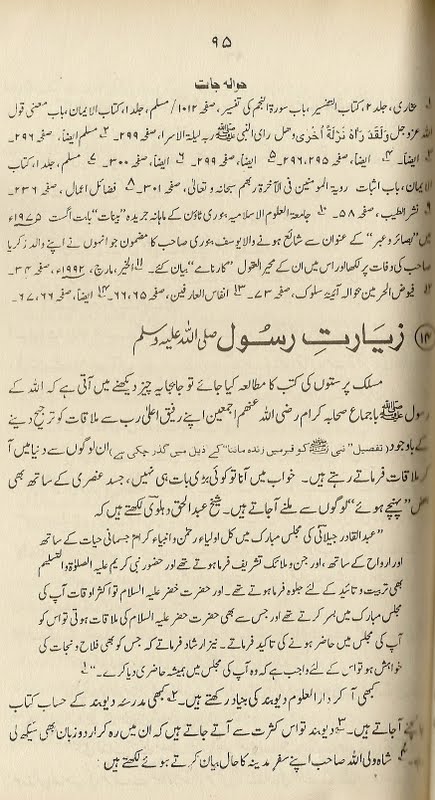 ۹۵
حوالہ جات
۱۔ بخاری، جلد ۲، کتاب التفسیر، باب سورۃ النجم کی تفسیر، صفحہ ۱۰۱۲/ مسلم، جلد ۱، کتاب الایمان، باب معنی قول
اللہ عزوجل وَلَقَد رَاٰہُ نَزلَۃً اُخریٰ وھل رای النبی ﷺ ربہ لیلۃ الاسراء، صفحہ ۲۹۹۔ ۲۔ مسلم ایضاً، صفحہ ۲۹۶۔
۳۔ ایضاً۔ ۴۔ ایضاً، صفحہ ۲۹۶،۲۹۵۔ ۵۔ ایضاً، صفحہ ۲۹۹۔ ۶۔ ایضاً، صفحہ ۳۰۰۔ ۷۔ مسلم، جلد ۱، کتاب
الایمان، باب اثبات رویۃ المومنین فی الآخرۃ ربھم سبحانہ وتعالیٰ، صفحہ ۳۰۱۔ ۸۔ فضائل اعمال، صفحہ ۲۳۶۔
۹۔ نشر الطیب، صفحہ ۵۸۔ ۱۰۔ جامعۃ العلوم الاسلامیہ بنوری ٹاؤن کے ماہانہ جریدہ ”بینات“ بابت اگست ۱۹۷۵ء
میں ”بصائر و عبر“ کے عنوان سے شائع ہونے والا یوسف بنوری صاحب کا مضمون جو انہوں نے اپنے والد زکریا
صاحب کی وفات پر لکھا اور اس میں ان کے محیر العقول ”کارنامے“ بیان کئے۔ ۱۱۔ الخیر، مارچ، ۱۹۹۲ء، صفحہ ۳۴۔
۱۲۔ فیوض الحرمین حوالہ آئینۂ سلوک، صفحہ ۷۳۔ ۱۳۔ انفاس العارفین، صفحہ ۶۶،۶۵۔ ۱۴۔ ایضاً، صفحہ ۶۷،۶۶۔
۱۴ زیارتِ رسُول صلی اللہ علیہ وسلم
مسلک پرستوں کی کتب کا مطالعہ کیا جائے تو جا بجا یہ چیز دیکھنے میں آتی ہے کہ اللہ کے
رسول ﷺ باجماع صحابہ کرام رضی اللہ عنھم اجمعین اپنے رفیق اعلیٰ رب سے ملاقات کو ترجیح دینے
کے باوجود (تفصیل ”نبی ﷺ کو قبر میں زندہ ماننا“ کے ذیل میں گذر چکی ہے) ان لوگوں سے دنیا میں آ
کر ملاقات فرماتے رہتے ہیں۔ خواب میں آنا تو کوئی بڑی بات ہی نہیں، جسد عنصری کے ساتھ بھی
بعض ”پہنچے ہوئے“ لوگوں سے ملنے آجاتے ہیں۔ شیخ عبدالحق دہلویؒ لکھتے ہیں کہ
”عبدالقادر جیلانیؒ کی مجلس مبارک میں کل اولیاء رحمٰن و انبیاء کرام جسمانی حیات کے ساتھ
اور ارواح کے ساتھ، اور جن و ملائک تشریف فرما ہوتے تھے اور حضور نبی کریم علیہ الصلوٰۃ والتسلیم
بھی تربیت و تائید کے لئے جلوہ فرما ہوتے تھے۔ اور حضرت خضر علیہ السلام تو اکثر اوقات آپ کی
مجلس مبارک میں بسر کرتے تھے اور جس سے بھی حضرت خضر علیہ السلام کی ملاقات ہوتی تو اس کو
آپ کی مجلس میں حاضر ہونے کی تاکید فرماتے۔ نیز ارشاد فرماتے کہ جس کو بھی فلاح و نجات کی
خواہش ہو تو اس کے لئے واجب ہے کہ وہ آپ کی مجلس میں ہمیشہ حاضری دیا کرے۔“ ۱
کبھی آ کر دارالعلوم دیوبند کی بنیاد رکھتے ہیں۔ ۲۔ کبھی مدرسۂ دیوبند کے حساب کتاب
جانچنے آجاتے ہیں۔ ۳۔ دیوبند تو اس کثرت سے آتے جاتے ہیں کہ ان میں رہ کر اردو زبان بھی سیکھ لی
شاہ ولی اللہ صاحب اپنے سفر مدینہ کا حال بیان کرتے ہوئے لکھتے ہیں